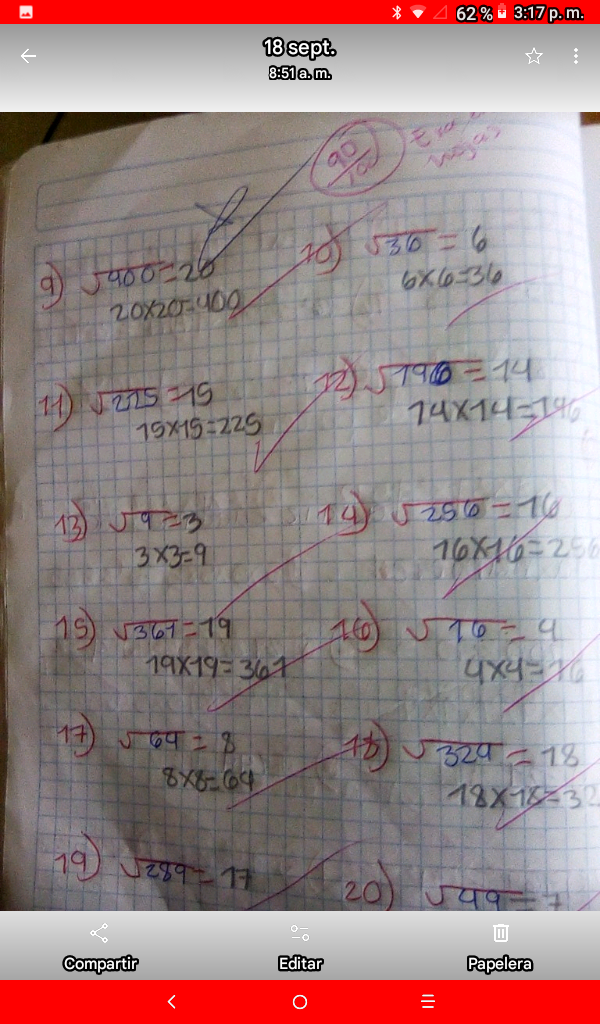 62 % 3:17 p. m.
18 sept.
8:51 a. m.
90
100
9) √400=20
20x20=400
10) √36 = 6
6x6=36
11) √225=15
15x15=225
12) √196=14
14x14=196
13) √9=3
3x3=9
14) √256=16
16x16=256
15) √361=19
19x19=361
16) √16=4
4x4=16
17) √64=8
8x8=64
18) √324=18
18x18=32
19) √289=17
20) √49=7
Compartir
Editar
Papelera